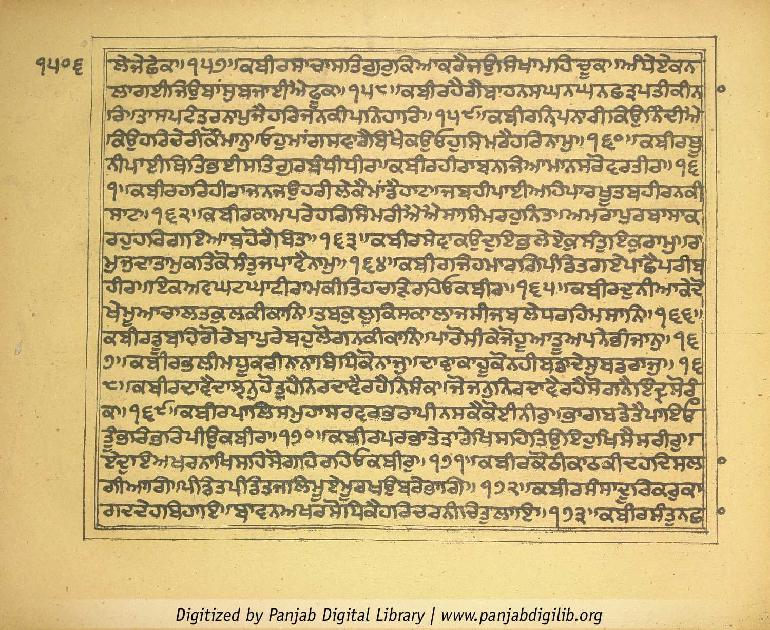 ੧੫੦੬
ਲੇਜੇਛੇਕ॥੧੫੭॥ਕਬੀਰਸਾਚਾਸਤਿਗੁਰੁਕਿਆਕਰੈਜਉਸਿਖਾਮਹਿਚੂਕ॥ਅੰਧੇਏਕਨ
ਲਾਗਈਜਿਉਬਾਂਸੁਬਜਾਈਐਫੂਕ॥੧੫੮॥ਕਬੀਰਹੈਗੈਬਾਹਨਸਘਨਘਨਛਤ੍ਰਪਤੀਕੀਨ
ਰਿ॥ਤਾਸਪਟੰਤਰਨਾਪੁਜੈਹਰਿਜਨਕੀਪਨਿਹਾਰਿ॥੧੫੯॥ਕਬੀਰਨ੍ਰਿਪਨਾਰੀਕਿਉਨਿੰਦੀਐ
ਕਿਉਹਰਿਚੇਰੀਕੌਮਾਨੁ॥ਓਹੁਮਾਂਗਸਵਾਰੈਬਿਖੈਕਉਓਹੁਸਿਮਰੈਹਰਿਨਾਮੁ॥੧੬੦॥ਕਬੀਰਥੂ
ਨੀਪਾਈਥਿਤਿਭਈਸਤਿਗੁਰਬੰਧੀਧੀਰ॥ਕਬੀਰਹੀਰਾਬਨਜਿਆਮਾਨਸਰੋਵਰਤੀਰ॥੧੬
੧॥ਕਬੀਰਹਰਿਹੀਰਾਜਨਜਉਹਰੀਲੇਕੈਮਾਂਡੈਹਾਟ॥ਜਬਹੀਪਾਈਅਹਿਪਾਰਖੂਤਬਹੀਰਨਕੀ
ਸਾਟ॥੧੬੨॥ਕਬੀਰਕਾਮਪਰੇਹਰਿਸਿਮਰੀਐਐਸਾਸਿਮਰਹੁਨਿਤ॥ਅਮਰਾਪੁਰਬਾਸਾਕ
ਰਹੁਹਰਿਗਇਆਬਹੋਰੈਬਿਤ॥੧੬੩॥ਕਬੀਰਸੇਵਾਕਉਦੁਇਭਲੇਏਕੁਸੰਤੁਇਕੁਰਾਮੁ॥ਰਾ
ਮੁਜਦਾਤਾਮੁਕਤਿਕੋਸੰਤੁਜਪਾਵੈਨਾਮੁ॥੧੬੪॥ਕਬੀਰਜਿਹਮਾਰਗਿਪੰਡਿਤਗਏਪਾਛੈਪਰੀਬ
ਹੀਰ॥ਇਕਅਵਘਟਘਾਟੀਰਾਮਕੀਤਿਹਚੜਿਰਹਿਓਕਬੀਰ॥੧੬੫॥ਕਬੀਰਦੁਨੀਆਕੇਦੋ
ਖੇਮੂਆਚਾਲਤਕੁਲਕੀਕਾਨਿ॥ਤਬਕੁਲੁਕਿਸਕਾਲਾਜਸੀਜਬਲੇਧਰਹਿਮਸਾਨਿ॥੧੬੬॥
ਕਬੀਰਡੂਬਹਿਗੋਰੇਬਾਪੁਰੇਬਹੁਲੋਗਨਕੀਕਾਨਿ॥ਪਾਰੋਸੀਕੇਜੋਹੂਆਤੂਅਪਨੇਭੀਜਾਨੁ॥੧੬
੭॥ਕਬੀਰਭਲੀਮਧੂਕਰੀਨਾਨਾਬਿਧਿਕੋਨਾਜੁ॥ਦਾਵਾਕਾਹੂਕੋਨਹੀਬਡਾਦੇਸੁਬਡਰਾਜੁ॥੧੬
੮॥ਕਬੀਰਦਾਵੈਦਾਝਨੁਹੋਤੁਹੈਨਿਰਦਾਵੈਰਹੈਨਿਸੰਕ॥ਜੋਜਨੁਨਿਰਦਾਵੈਰਹੈਸੋਗਨੈਇੰਦ੍ਰਸੋਰੰ
ਕ॥੧੬੯॥ਕਬੀਰਪਾਲਿਸਮੁਹਾਸਰਵਰੁਭਰਾਪੀਨਸਕੈਕੋਈਨੀਰੁ॥ਭਾਗਬਡੇਤੈਪਾਇਓ
ਤੂੰਭਰਿਭਰਿਪੀਉਕਬੀਰ॥੧੭੦॥ਕਬੀਰਪਰਭਾਤੇਤਾਰੇਖਿਸਹਿਤਿਉਇਹੁਖਿਸੈਸਰੀਰੁ॥
ਏਦੁਇਅਖਰਨਾਖਿਸਹਿਸੋਗਹਿਰਹਿਓਕਬੀਰੁ॥੧੭੧॥ਕਬੀਰਕੋਠੀਕਾਠਕੀਦਹਦਿਸਲਾ
ਗੀਆਗਿ॥ਪੰਡਿਤਪੰਡਿਤਜਲਿਮੂਏਮੂਰਖਉਬਰੇਭਾਗਿ॥੧੭੨॥ਕਬੀਰਸੰਸਾਦੂਰਿਕਰੁਕਾ
ਗਦਦੇਹਬਿਹਾਇ॥ਬਾਵਨਅਖਰਸੋਧਿਕੈਹਰਿਚਰਨੀਚਿਤੁਲਾਇ॥੧੭੩॥ਕਬੀਰਸੰਤੁਨਛਾ
Digitized by Panjab Digital Library | www.panjabdigilib.org